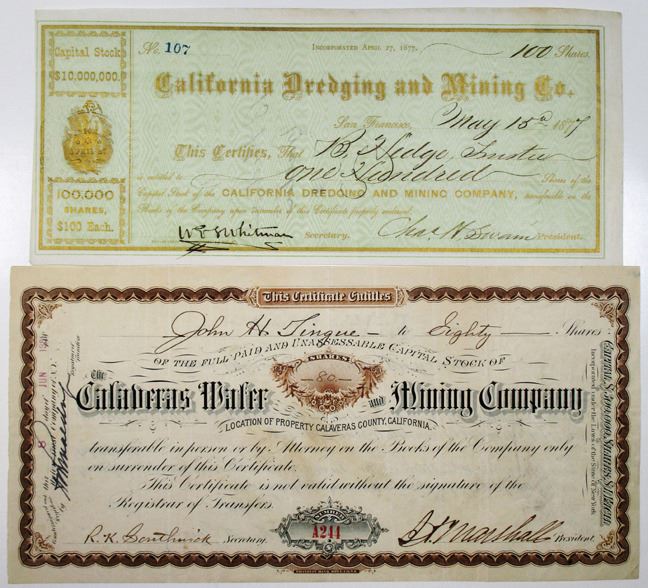 Capital Stock
$10,000,000.
100,000
SHARES,
$100 Each.
No. 107
INCORPORATED APRIL 27, 1877.
100 Shares.
California Dredging and Mining Co.
San Francisco, May 15th 1877
This Certifies, That B. Hedge, Trustee
is entitled to One Hundred Shares of the
Capital Stock of the CALIFORNIA DREDGING AND MINING COMPANY, transferable on the
Books of the Company upon surrender of this Certificate properly endorsed.
Secretary.
Chas. N. Swain President.
This Certificate Entitles
John H. Tingue to Eighty Shares
OF THE FULL PAID AND UNASSESSABLE CAPITAL STOCK OF
SHARES
80
The Calaveras Water and Mining Company
LOCATION OF PROPERTY CALAVERAS COUNTY, CALIFORNIA.
transferable in person or by Attorney on the Books of the Company only
on surrender of this Certificate.
This Certificate is not valid without the signature of the
Registrar of Transfers.
R.K. Southwick Secretary.
NUMBER
A241
Marshall President
Incorporated under the Laws of the State of New York